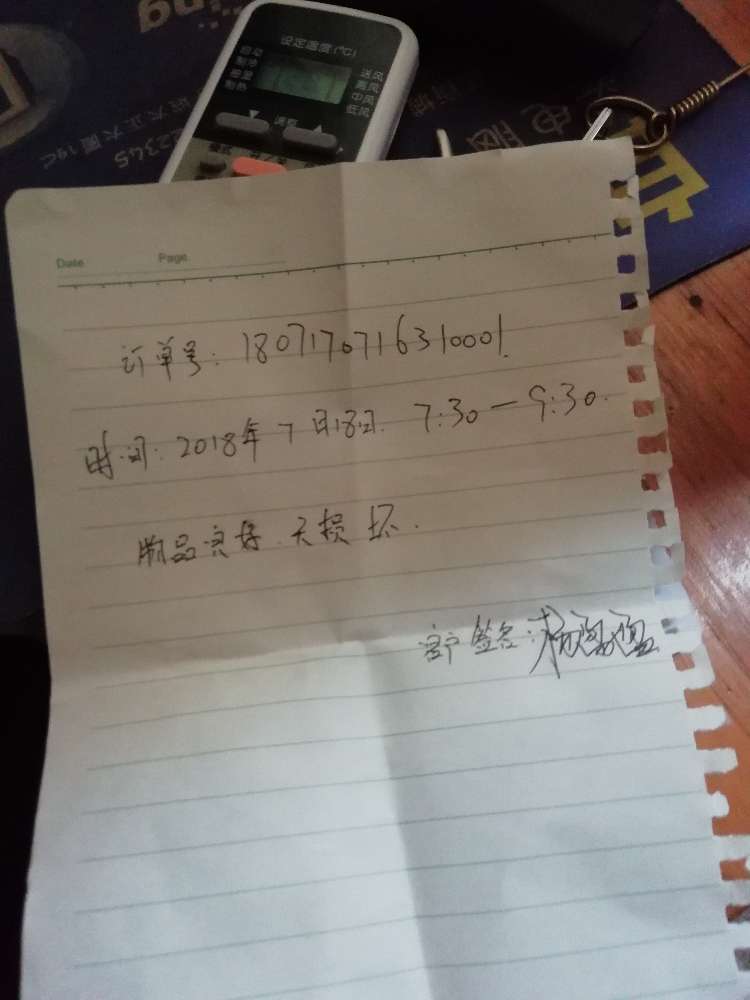 设定温度(℃)
自动
制冷
除湿
制热
送风
高风
中风
低风
调整
22345
电脑
Date
Page
订单号：1807170716310001.
时间：2018年7月18日. 7:30—9:30.
物品良好.无损坏.
客户签名：